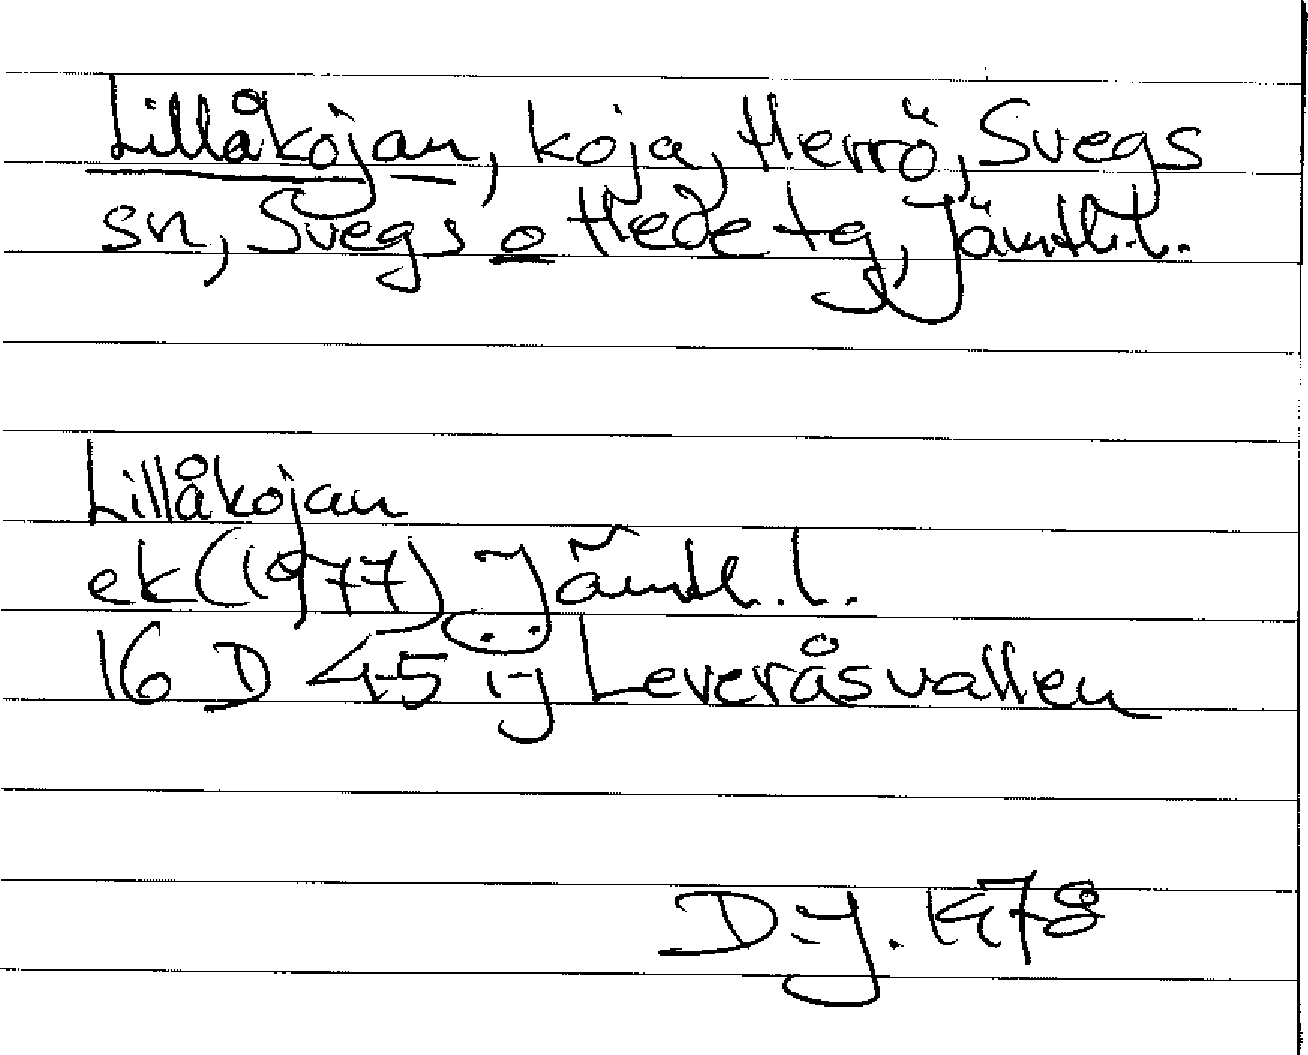 Lillåkojan, koja, Herrö, Svegs
sn, Svegs o Hede tg, Jämtl.l.
Lillåkojan
ek (1977) Jämtl.l.
16 D 4-5 i-j Leveråsvallen
D:J. 1978